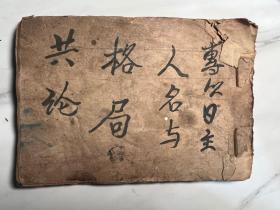 專以日主
人名与
格局
共论